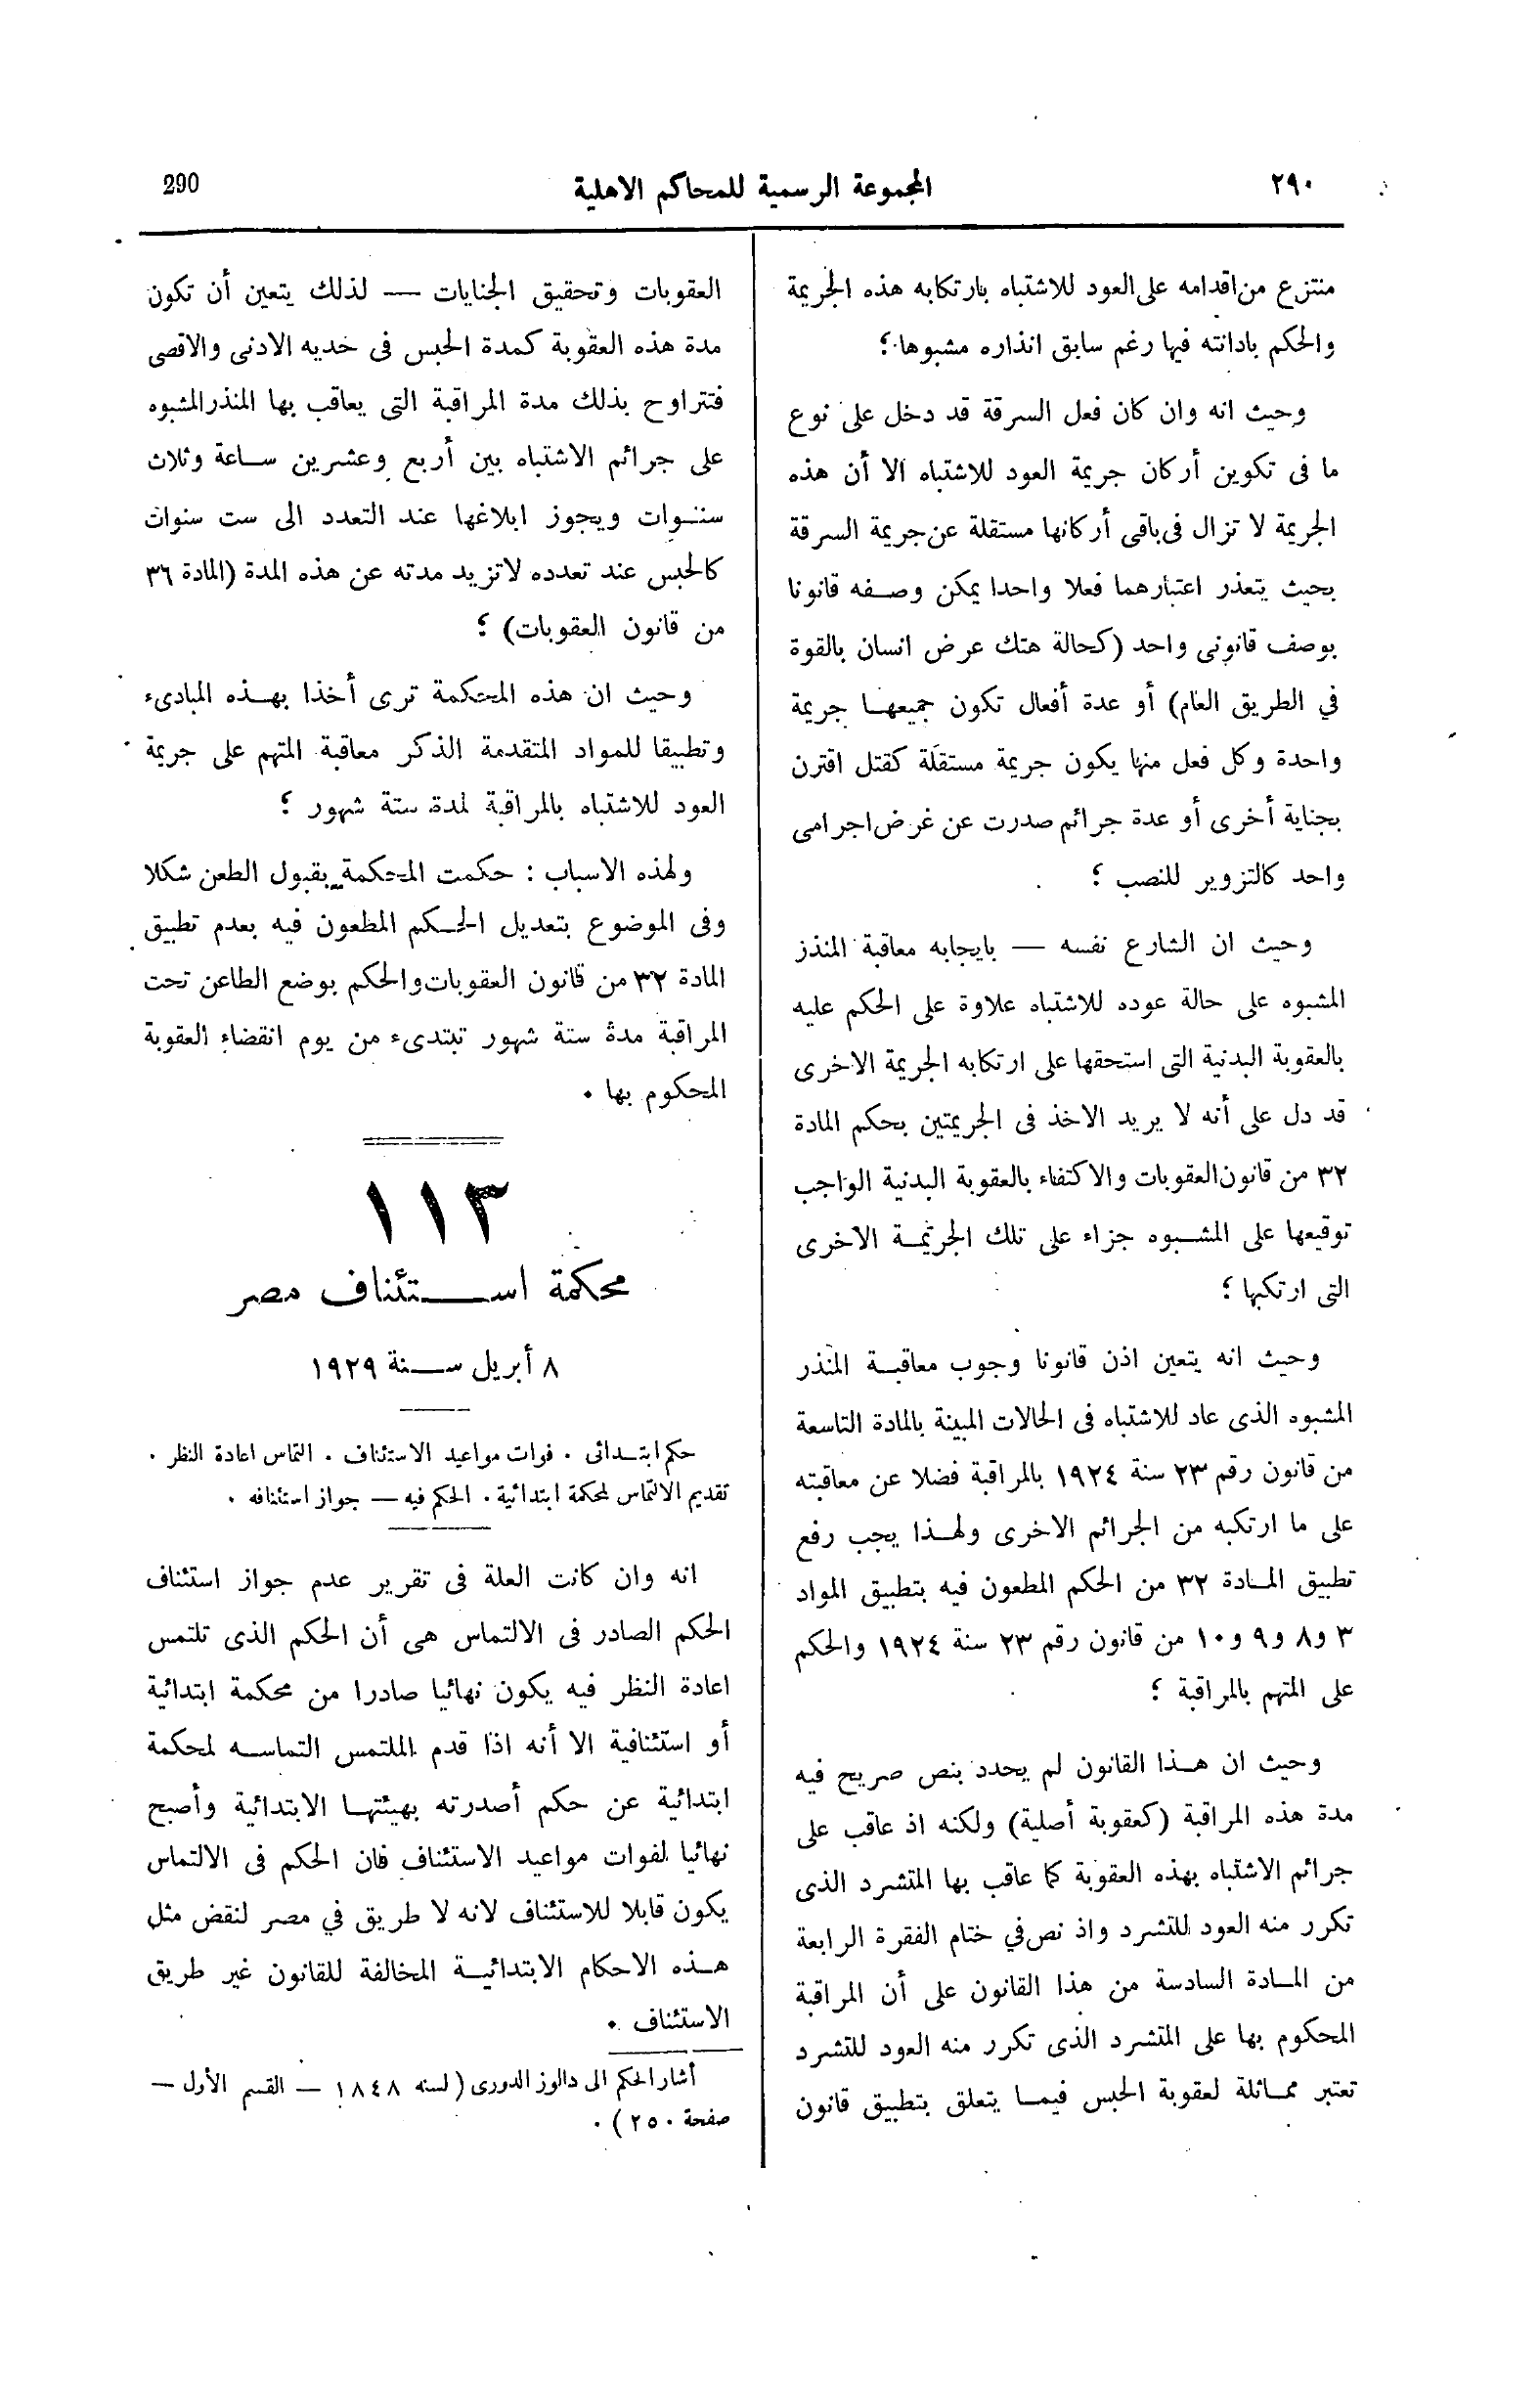 ٢٩٠
المجموعة الرسمية للمحاكم الاهلية
290
منتزع من اقدامه على العود للاشتباه بارتكابه هذه الجريمة
والحكم بادانته فيها رغم سابق انذاره مشبوها ؛
وحيث انه وان كان فعل السرقة قد دخل على نوع
ما فى تكوين أركان جريمة العود للاشتباه الا أن هذه
الجريمة لا تزال فى باقى أركانها مستقلة عن جريمة السرقة
بحيث يتعذر اعتبارهما فعلا واحدا يمكن وصفه قانونا
بوصف قانونى واحد (كحالة هتك عرض انسان بالقوة
في الطريق العام) أو عدة أفعال تكون جميعها جريمة
واحدة وكل فعل منها يكون جريمة مستقلة كقتل اقترن
بجناية أخرى أو عدة جرائم صدرت عن غرض اجرامى
واحد كالتزوير للنصب ؛
وحيث ان الشارع نفسه — بايجابه معاقبة المنذر
المشبوه على حالة عوده للاشتباه علاوة على الحكم عليه
بالعقوبة البدنية التى استحقها على ارتكابه الجريمة الاخرى
قد دل على أنه لا يريد الاخذ فى الجريمتين بحكم المادة
٣٢ من قانون العقوبات والاكتفاء بالعقوبة البدنية الواجب
توقيعها على المشبوه جزاء على تلك الجريمة الاخرى
التى ارتكبها ؛
وحيث انه يتعين اذن قانونا وجوب معاقبة المنذر
المشبوه الذى عاد للاشتباه فى الحالات المبينة بالمادة التاسعة
من قانون رقم ٢٣ سنة ١٩٢٤ بالمراقبة فضلا عن معاقبته
على ما ارتكبه من الجرائم الاخرى ولهذا يجب رفع
تطبيق المادة ٣٢ من الحكم المطعون فيه بتطبيق المواد
٣ و٨ و٩ و١٠ من قانون رقم ٢٣ سنة ١٩٢٤ والحكم
على المتهم بالمراقبة ؛
وحيث ان هذا القانون لم يحدد بنص صريح فيه
مدة هذه المراقبة (كعقوبة أصلية) ولكنه اذ عاقب على
جرائم الاشتباه بهذه العقوبة كما عاقب بها المتشرد الذى
تكرر منه العود للتشرد واذ نص في ختام الفقرة الرابعة
من المادة السادسة من هذا القانون على أن المراقبة
المحكوم بها على المتشرد الذى تكرر منه العود للتشرد
تعتبر مماثلة لعقوبة الحبس فيما يتعلق بتطبيق قانون
العقوبات وتحقيق الجنايات — لذلك يتعين أن تكون
مدة هذه العقوبة كمدة الحبس فى حديه الادنى والاقصى
فتتراوح بذلك مدة المراقبة التى يعاقب بها المنذر المشبوه
على جرائم الاشتباه بين أربع وعشرين ساعة وثلاث
سنوات ويجوز ابلاغها عند التعدد الى ست سنوات
كالحبس عند تعدده لا تزيد مدته عن هذه المدة (المادة ٣٦
من قانون العقوبات) ؛
وحيث ان هذه المحكمة ترى أخذا بهذه المبادىء
وتطبيقا للمواد المتقدمة الذكر معاقبة المتهم على جريمة
العود للاشتباه بالمراقبة لمدة ستة شهور ؛
ولهذه الاسباب : حكمت المحكمة بقبول الطعن شكلا
وفى الموضوع بتعديل الحكم المطعون فيه بعدم تطبيق
المادة ٣٢ من قانون العقوبات والحكم بوضع الطاعن تحت
المراقبة مدة ستة شهور تبتدىء من يوم انقضاء العقوبة
المحكوم بها .
١١٣
محكمة استئناف مصر
٨ أبريل سنة ١٩٢٩
حكم ابتدائى . فوات مواعيد الاستئناف . التماس اعادة النظر .
تقديم الالتماس لمحكمة ابتدائية . الحكم فيه — جواز استئنافه .
انه وان كانت العلة فى تقرير عدم جواز استئناف
الحكم الصادر فى الالتماس هى أن الحكم الذى تلتمس
اعادة النظر فيه يكون نهائيا صادرا من محكمة ابتدائية
أو استئنافية الا أنه اذا قدم الملتمس التماسه لمحكمة
ابتدائية عن حكم أصدرته بهيئتها الابتدائية وأصبح
نهائيا لفوات مواعيد الاستئناف فان الحكم فى الالتماس
يكون قابلا للاستئناف لانه لا طريق في مصر لنقض مثل
هذه الاحكام الابتدائية المخالفة للقانون غير طريق
الاستئناف .
أشار الحكم الى دالوز الدورى ( لسنه ١٨٤٨ — القسم الأول —
صفحة ٢٥٠ ) .